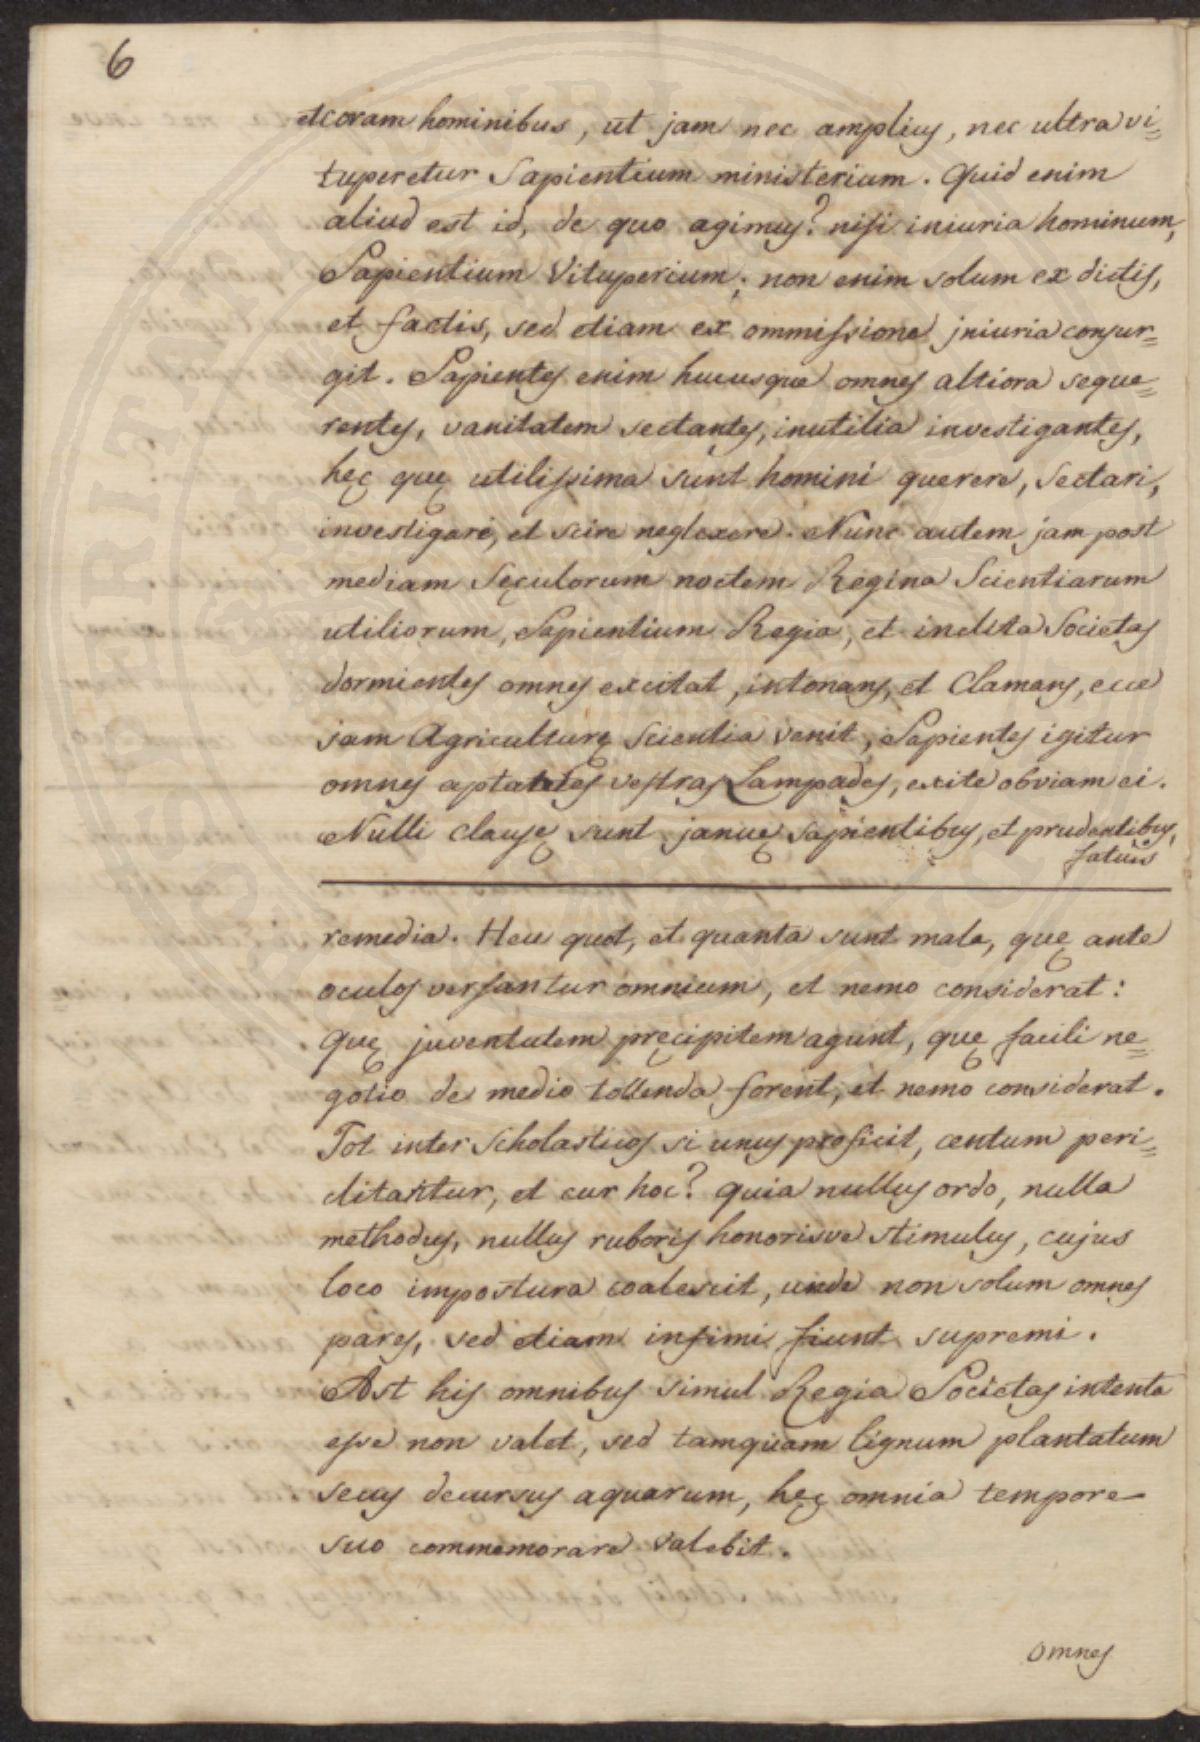 6
et coram hominibus, ut jam nec amplius, nec ultra vi=
tuperetur Sapientium ministerium. Quid enim
aliud est id, de quo agimus? nisi iniuria hominum,
Sapientium Vituperium; non enim solum ex dictis,
et factis, sed etiam ex ommissione jniuria consur=
git. Sapientes enim hucusque omnes altiora seque=
rentes, vanitatem sectantes, inutilia investigantes,
hęc quę utilissima sunt homini querere, Sectari,
investigare, et scire neglexere. Nunc autem jam post
mediam Sęculorum noctem Regina Scientiarum
utiliorum, Sapientium Regia, et inclita Societas
dormientes omnes excitat, intonans, et Clamans, ecce
jam Agriculturę Scientia venit, Sapientes igitur
omnes aptate vestras Lampades, exite obviam ei.
Nulli clausę sunt januę sapientibus, et prudentibus,
fatuis
remedia. Heu quot, et quanta sunt mala, quę ante
oculos versantur omnium, et nemo considerat:
Quę juventutem pręcipitem agunt, quę facili ne=
gotio de medio tollenda forent, et nemo considerat.
Tot inter Scholasticos si unus proficit, centum peri=
clitantur, et cur hoc? quia nullus ordo, nulla
methodus, nullus ruboris honorisve stimulus, cujus
loco impostura coalescit, unde non solum omnes
pares, sed etiam infimi fiunt supremi.
Ast his omnibus simul Regia Societas intenta
esse non valet, sed tamquam lignum plantatum
secus decursus aquarum, hęc omnia tempore
suo commemorare valebit.
omnes